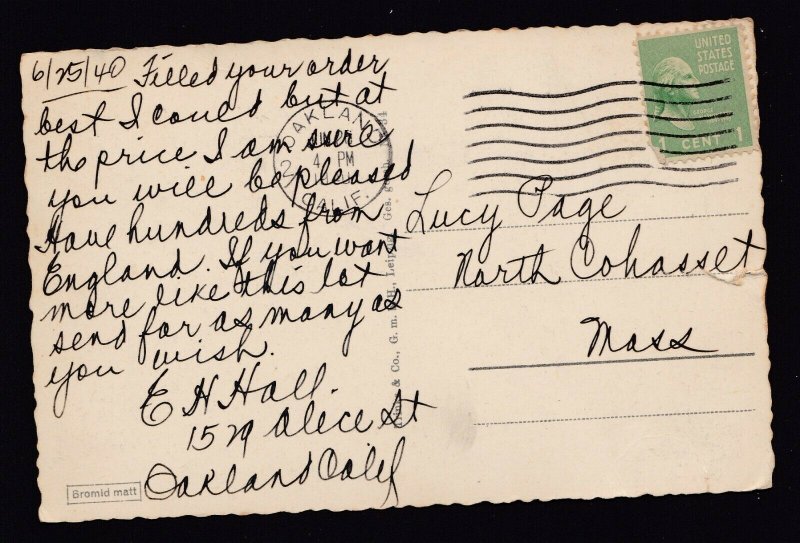 6/25/40 Filled your order
best I could but at
the price I am sure
you will be pleased
Have hundreds from
England. If you want
more like this lot
send for as many as
you wish.
E H Hall.
1529 Alice St
Oakland Calif
Bromid matt
& Co., G. m. H., Leipzig Ges.
OAKLAND
4 PM
CALIF.
UNITED
STATES
POSTAGE
GEORGE
1 CENT 1
Lucy Page
North Cohasset
Mass